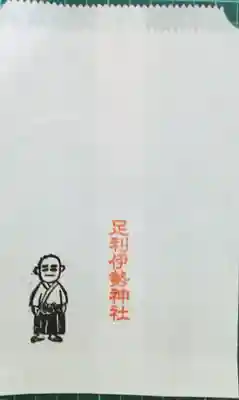 足利伊勢神社